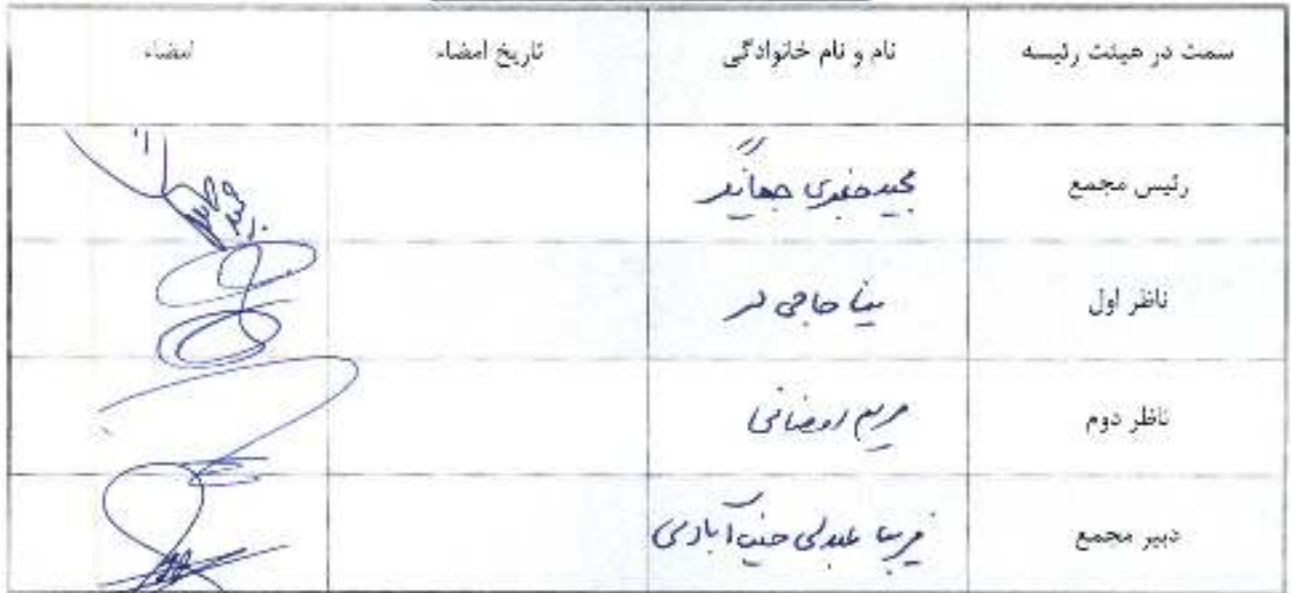 سمت در هیئت رئیسه نام و نام خانوادگی تاریخ امضاء امضاء
رئیس مجمع مجید جعفری
ناظر اول مینا حاجی
ناظر دوم مریم رمضانی
دبیر مجمع عبدلی آبادی